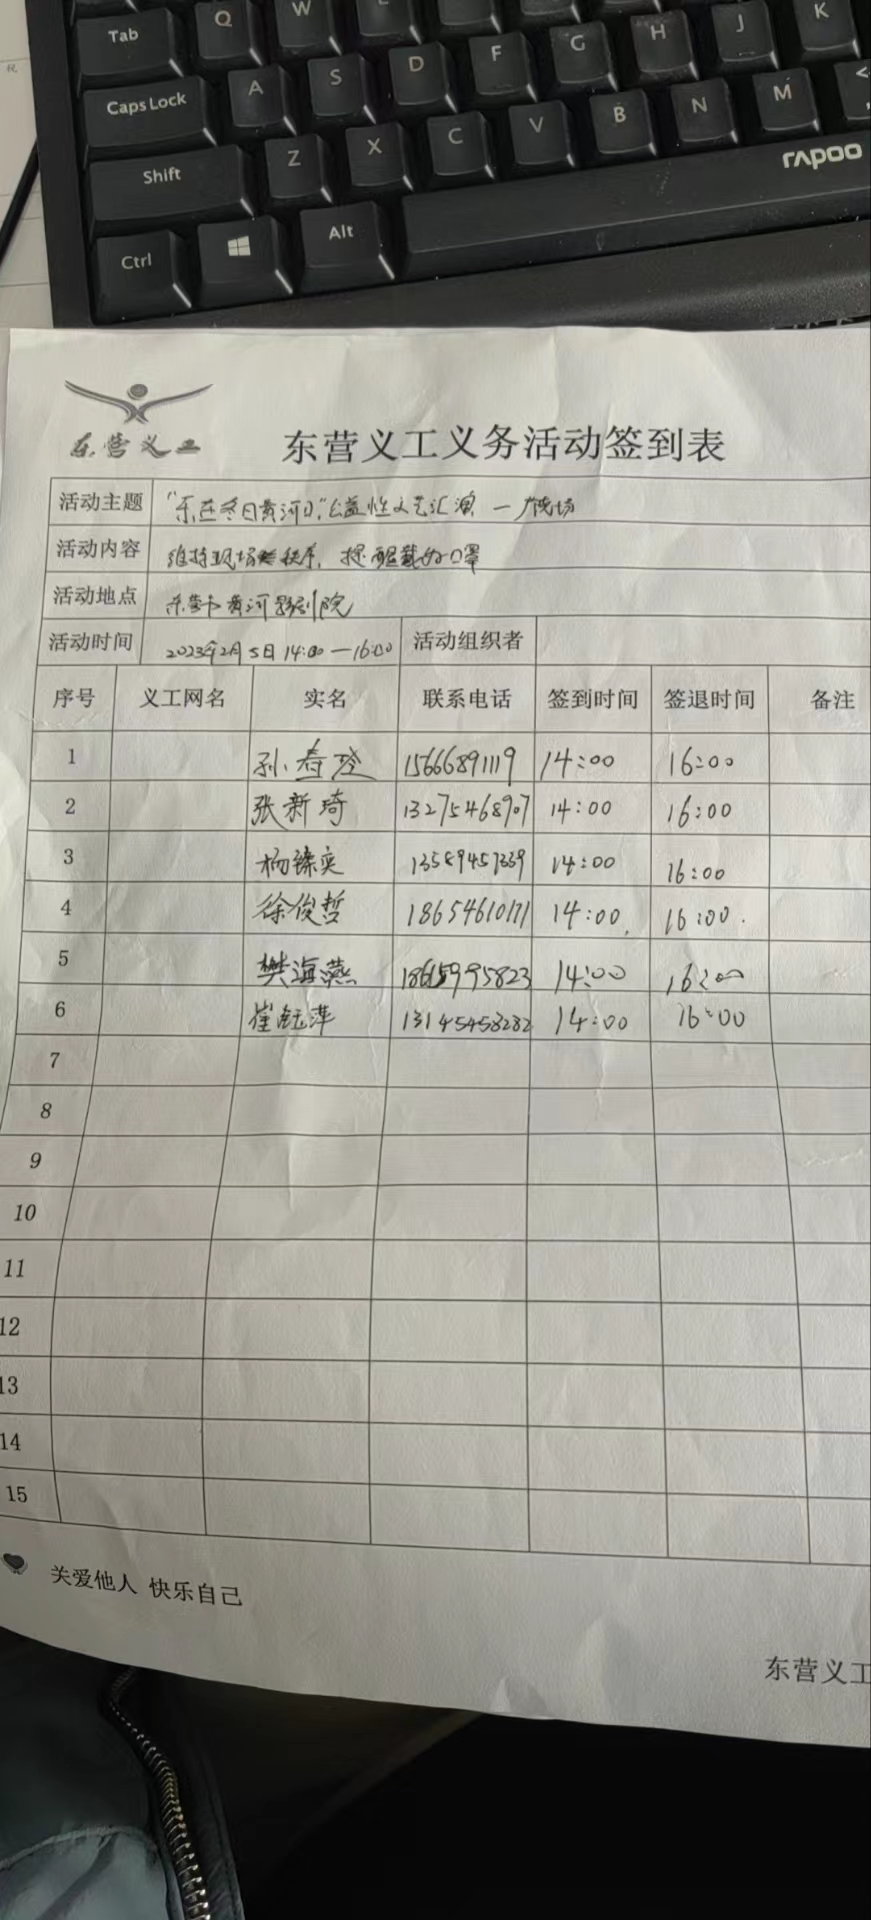 Tab Q W E
Caps Lock A S D F G H J K
Shift Z X C V B N M <
rapoo
Ctrl Alt
东营义工
东营义工义务活动签到表
活动主题 "乐在冬日黄河口"公益性文艺汇演 一广饶场
活动内容 维持现场秩序，提醒戴好口罩
活动地点 东营市黄河影剧院
活动时间 2023年2月5日14:00—16:00 活动组织者
序号 义工网名 实名 联系电话 签到时间 签退时间 备注
1 孙春玲 15666891119 14:00 16:00
2 张新琦 13275468907 14:00 16:00
3 杨臻奕 13589457339 14:00 16:00
4 徐俊哲 18654610171 14:00 16:00
5 樊海燕 14:00 16:00
6 崔钰萍 13145458282 14:00 16:00
7
8
9
10
11
12
13
14
15
关爱他人 快乐自己
东营义工